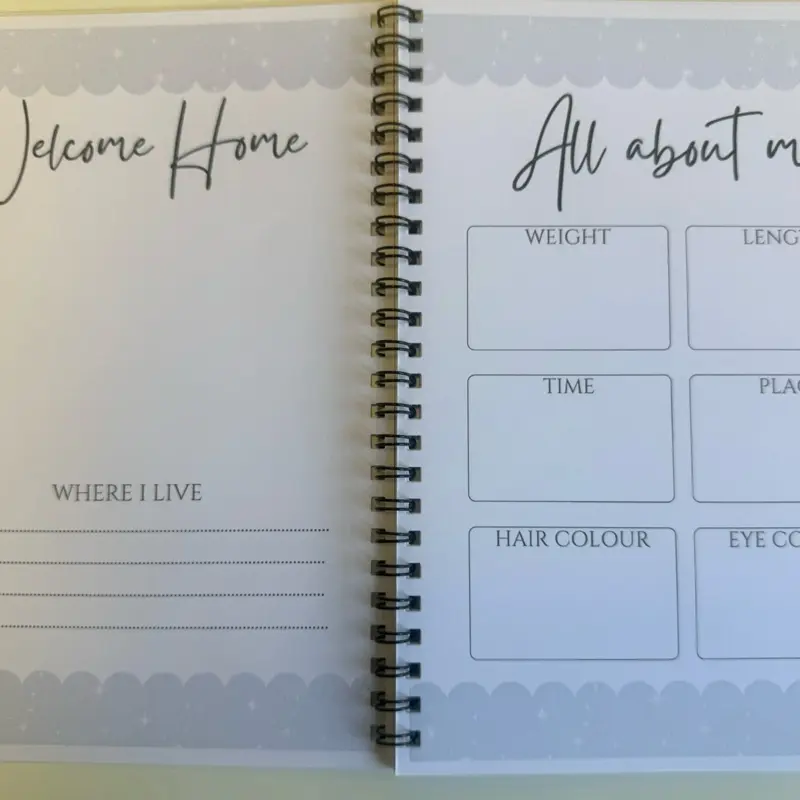 Welcome Home
WHERE I LIVE
All about m
WEIGHT LENG
TIME PLA
HAIR COLOUR EYE CO